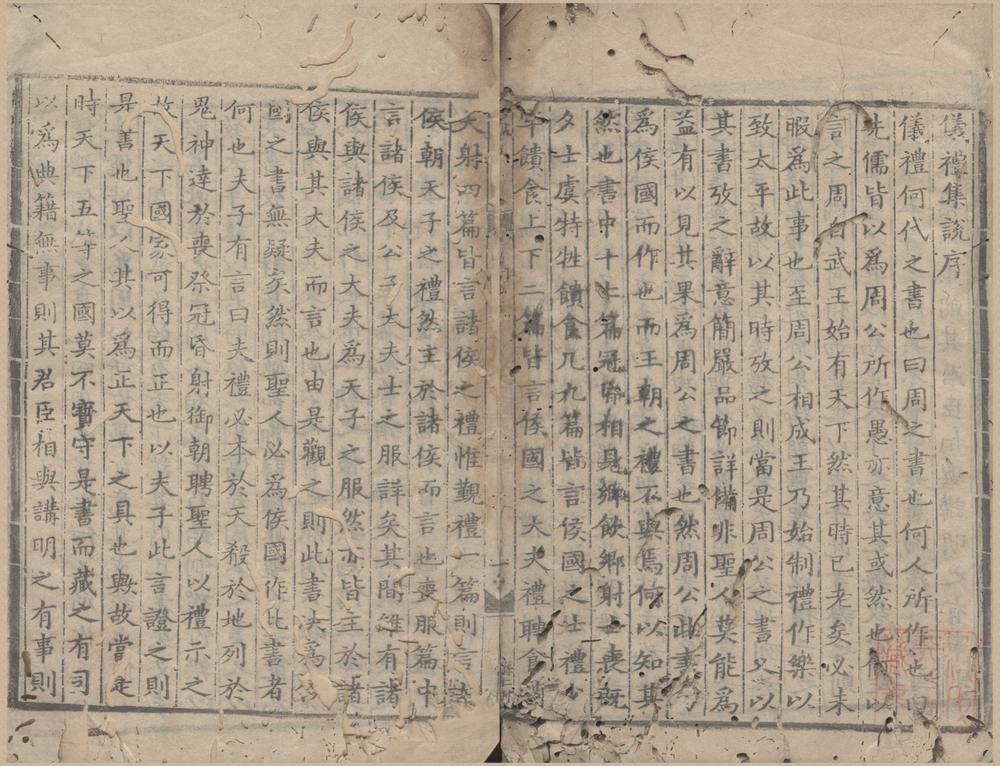 儀禮集說序
儀禮何代之書也曰周之書也何人所作也曰
先儒皆以為周公所作愚亦意其或然也何以
言之周自武王始有天下然其時已老矣必未
暇為此事也至周公相成王乃始制禮作樂以
致太平故以其時攷之則當是周公之書又以
其書攷之辭意簡嚴品節詳備非聖人莫能為
益有以見其果為周公之書也然周公此書乃
為侯國而作也而王朝之禮不與焉何以知其
然也書中十七篇冠昏相見鄉飲鄉射士喪既
夕士虞特牲饋食凡九篇皆言侯國之士禮少
牢饋食上下二篇皆言侯國之大夫禮聘食燕
大射四篇皆言諸侯之禮惟覲禮一篇則言諸
侯朝天子之禮然主於諸侯而言也喪服篇中
言諸侯及公子大夫士之服詳矣其間雖有諸
侯與諸侯之大夫為天子之服然亦皆主於諸
侯與其大夫而言也由是觀之則此書決為侯
國之書無疑矣然則聖人必為侯國作此書者
何也夫子有言曰夫禮必本於天殽於地列於
鬼神達於喪祭冠昏射御朝聘聖人以禮示之
故天下國家可得而正也以夫子此言證之則
是書也聖人其以為正天下之具也與故當是
時天下五等之國莫不寶守是書而藏之有司
以為典籍無事則其君臣相與講明之有事則